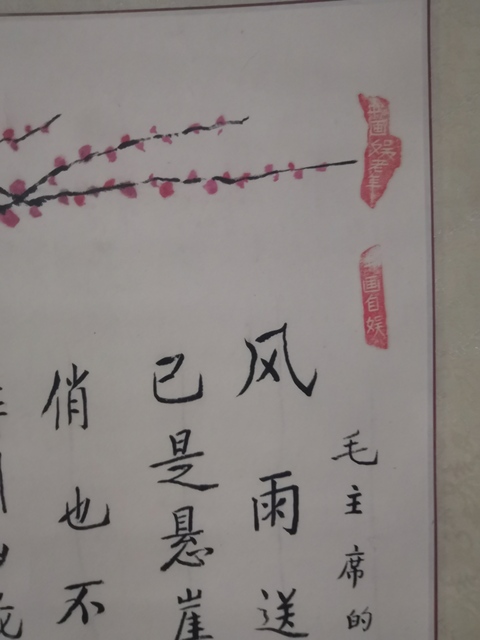 画娱老年
画自娱
毛主席的
风雨送
已是悬崖
俏也不